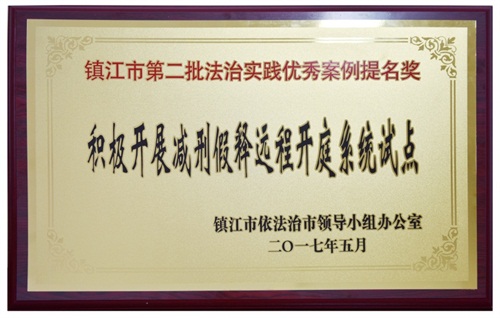 镇江市第二批法治实践优秀案例提名奖
积极开展减刑假释远程开庭系统试点
镇江市依法治市领导小组办公室
二〇一七年五月